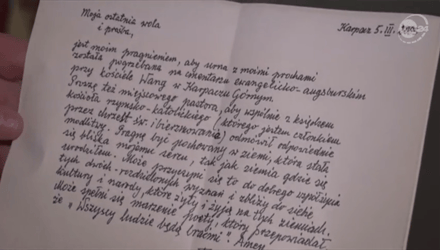 Moja ostatnia wola
i prośba,
Karpacz 5. III.
jest moim pragnieniem, aby urna z moimi prochami
została pogrzebana na cmentarzu ewangelicko-augsburskim
przy kościele Wang w Karpaczu Górnym.
Proszę też miejscowego pastora, aby wspólnie z księdzem
kościoła rzymsko-katolickiego (którego jestem członkiem
przez chrzest św. i bierzmowanie) odmówił odpowiednie
modlitwy. Pragnę być pochowany w ziemi, która stała
się bliska mojemu sercu, tak jak ziemia gdzie się
urodziłem. Może przyczyni się to do dobrego współżycia
tych dwóch rozdzielonych wyznań i zbliży do siebie
kultury i narody, które żyły i żyją na tych ziemiach.
Może spełni się marzenie poety, który przepowiadał
że "Wszyscy ludzie będą braćmi". Amen.